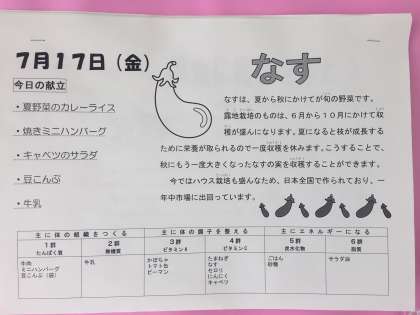 7月17日(金)
なす
今日の献立
・夏野菜のカレーライス
・焼きミニハンバーグ
・キャベツのサラダ
・豆こんぶ
・牛乳
なすは、夏から秋にかけてが旬の野菜です。
露地栽培のものは、6月から10月にかけて収
穫が盛んになります。夏になると枝が成長する
ために栄養が取られるので一度収穫を休みます。こうすることで、
秋にもう一度大きくなったなすの実を収穫することができます。
今ではハウス栽培も盛んなため、日本全国で作られており、一
年中市場に出回っています。
主に体の組織をつくる 主に体の調子を整える 主にエネルギーになる
1群 2群 3群 4群 5群 6群
たんぱく質 無機質 ビタミンA ビタミンC 炭水化物 脂質
牛肉 牛乳 かぼちゃ たまねぎ ごはん サラダ油
ミニハンバーグ トマト缶 なす 砂糖
豆こんぶ(袋) ピーマン セロリ
にんにく
キャベツ